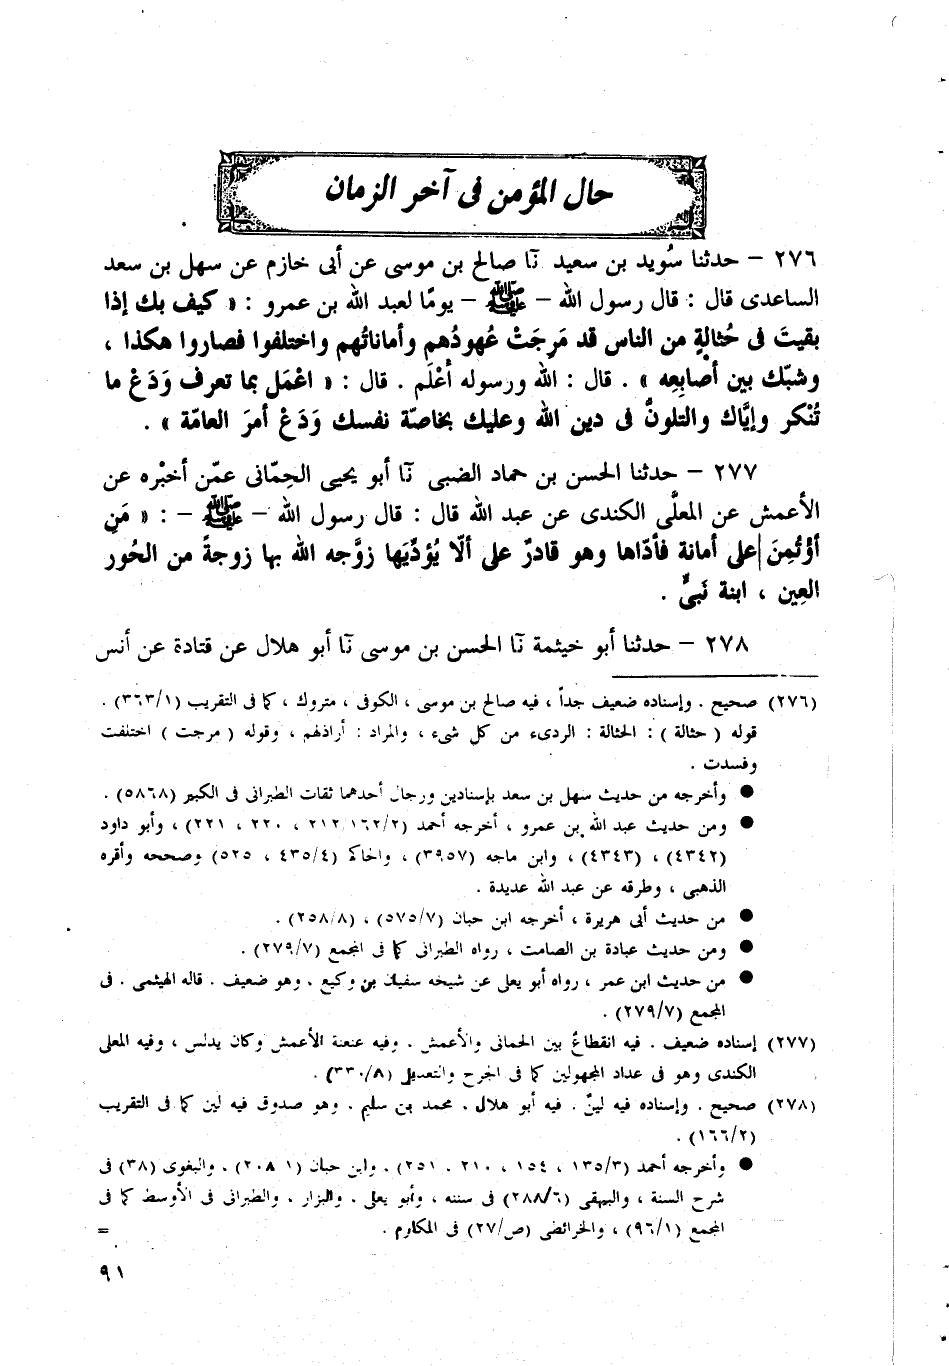 حال المؤمن فى آخر الزمان
٢٧٦ – حدثنا سُويد بن سعيد نَا صالح بن موسى عن أبى خازم عن سهل بن سعد
الساعدى قال : قال رسول الله – ﷺ – يومًا لعبد الله بن عمرو : « كيف بك إذا
بقيتَ فى حُثالةٍ من الناس قد مَرجَتْ عُهودُهم وأماناتُهم واختلفوا فصاروا هكذا ،
وشبّك بين أصابِعِه » . قال : الله ورسوله أعْلَم . قال : « اعْمَل بما تعرف وَدَعْ ما
تُنْكر وإيَّاك والتلونَّ فى دين الله وعليك بخاصّة نفسك وَدَعْ أمرَ العامّة » .
٢٧٧ – حدثنا الحسن بن حماد الضبى نَا أبو يحيى الحِمّانى عمّن أخبْره عن
الأعمش عن المعلَّى الكندى عن عبد الله قال : قال رسول الله – ﷺ – : « مَن
أؤتُمِنَ على أمانة فأدّاها وهو قادرٌ على ألّا يُؤدِّيَها زوَّجه الله بها زوجةً من الحُور
العِين ، ابنة نَبىٍّ .
٢٧٨ – حدثنا أبو خيثمة نَا الحسن بن موسى نَا أبو هلال عن قتادة عن أنس
(٢٧٦) صحيح . وإسناده ضعيف جداً ، فيه صالح بن موسى ، الكوفى ، متروك ، كما فى التقريب (٣٦٣/١) .
قوله ( حثالة ) : الحثالة : الردىء من كل شىء ، والمراد : أراذلهم ، وقوله ( مرجت ) اختلفت
وفسدت .
● وأخرجه من حديث سهل بن سعد بإسنادين ورجال أحدهما ثقات الطبرانى فى الكبير (٥٨٦٨) .
● ومن حديث عبد الله بن عمرو ، أخرجه أحمد (١٦٢/٢، ٢١٢ ، ٢٢٠ ، ٢٢١) ، وأبو داود
(٤٣٤٢) ، (٤٣٤٣) ، وابن ماجه (٣٩٥٧) ، والحاكم (٤٣٥/٤ ، ٥٢٥) وصححه وأقره
الذهبى ، وطرقه عن عبد الله عديدة .
● من حديث أبى هريرة ، أخرجه ابن حبان (٥٧٥/٧) ، (٢٥٨/٨) .
● ومن حديث عبادة بن الصامت ، رواه الطبرانى كما فى المجمع (٢٧٩/٧) .
● من حديث ابن عمر ، رواه أبو يعلى عن شيخه سفيان بن وكيع . وهو ضعيف . قاله الهيثمى . فى
المجمع (٢٧٩/٧) .
(٢٧٧) إسناده ضعيف . فيه انقطاعٌ بين الحمانى والأعمش . وفيه عنعنة الأعمش وكان يدلس ، وفيه المعلى
الكندى وهو فى عداد المجهولين كما فى الجرح والتعديل (٣٣٠/٨) .
(٢٧٨) صحيح . وإسناده فيه لينٌ . فيه أبو هلال . محمد بن سليم . وهو صدوق فيه لين كما فى التقريب
(١٦٦/٢) .
● وأخرجه أحمد (١٣٥/٣ ، ١٥٤ ، ٢١٠ ، ٢٥١) . وابن حبان (٢٠٨/١) . والبغوى (٣٨) فى
شرح السنة ، والبيهقى (٢٨٨/٦) فى سننه ، وأبو يعلى . والبزار . والطبرانى فى الأوسط كما فى
المجمع (٩٦/١) ، والخرائضى (ص/٢٧) فى المكارم . =
٩١